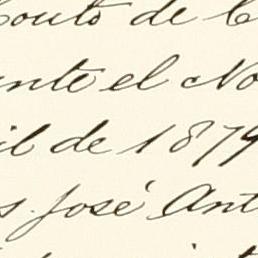 Couto de C
ante el No
il de 1874
s José Ant